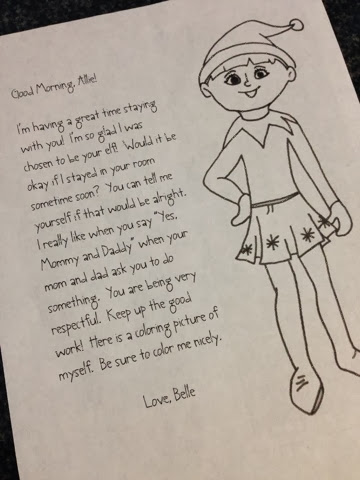 Good Morning, Allie!
I'm having a great time staying
with you! I'm so glad I was
chosen to be your elf! Would it be
okay if I stayed in your room
sometime soon? You can tell me
yourself if that would be alright.
I really like when you say "Yes,
Mommy and Daddy" when your
mom and dad ask you to do
something. You are being very
respectful. Keep up the good
work! Here is a coloring picture of
myself. Be sure to color me nicely.
Love, Belle